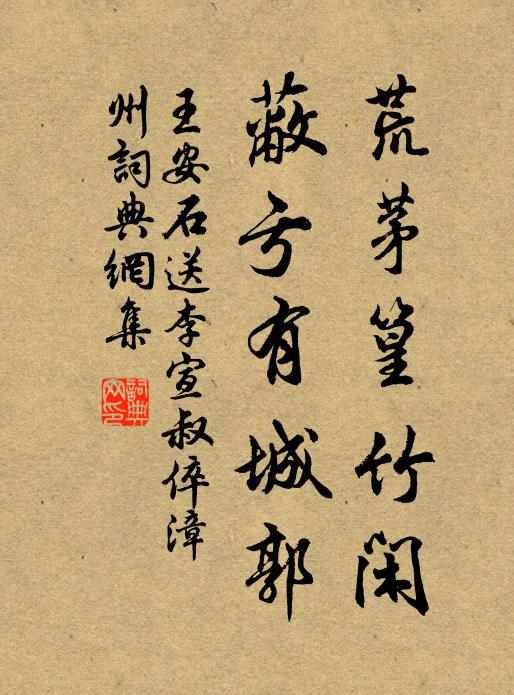 荒茅篁竹閑
蔽亏有城郭
王安石送李宣叔倅漳
州詞典網集
詞典
网印